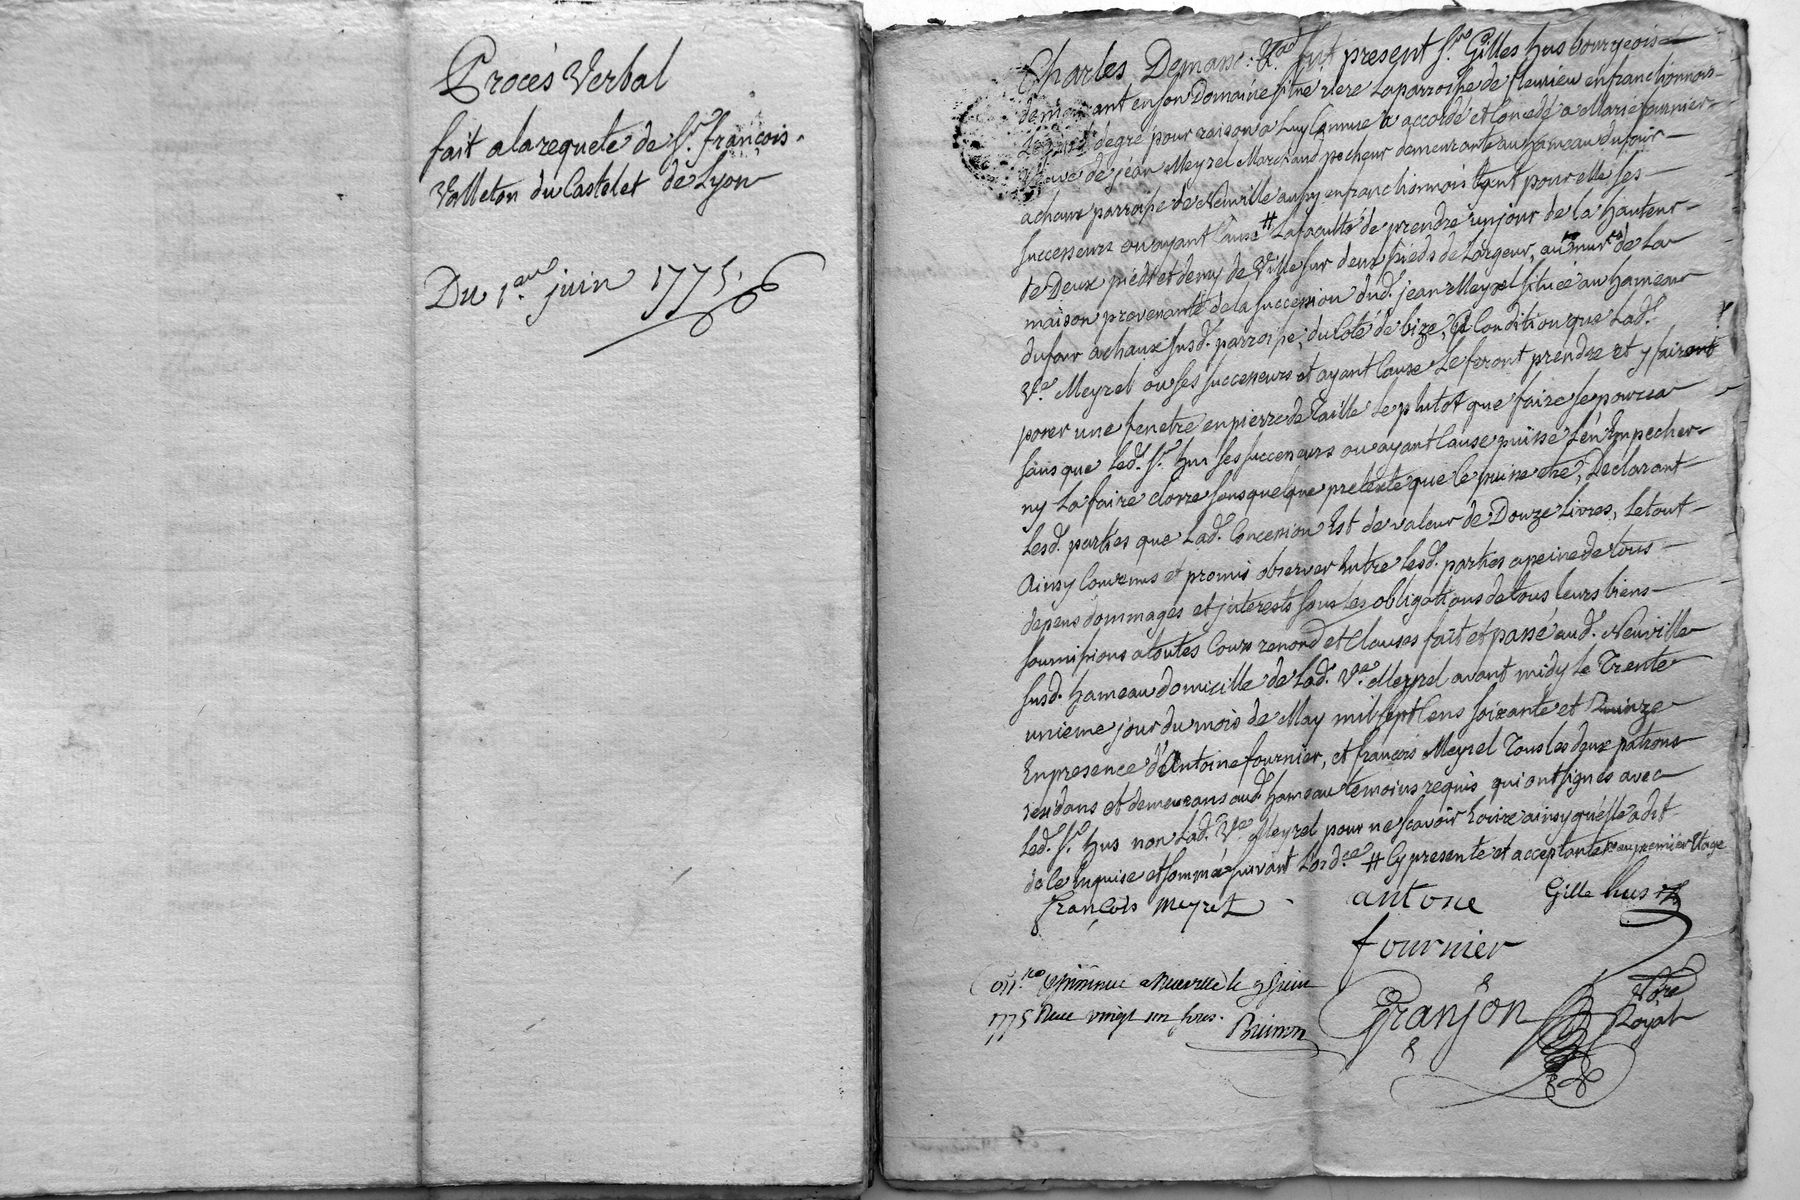 Procès Verbal
fait a la requete de Sr. françois
Valleton du Castelet de Lyon
Du 1er juin 1775.
Charles Demans. fut present Sr. Gilles hus bourgeois
demeurant en son Domaine situé riere La parroisse de fleurieu en franc lionnois
degré pour raison a Luy Connue a accordé et Concedé a Marie fournier
Veuve de jéan Meyrel Marchand pecheur demeurante au hameau du four
a chaux parroisse de Neuville aussy en franc lionnois tant pour elle ses
successeurs ou ayant Cause # La faculté de prendre un jour de la hauteur
de Deux pieds et demy de Ville sur deux pieds de Largeur, au mur de La
maison provenante de la succession dud. jean Meyrel situéé au hameau
du four a chaux susd. parroisse, du Coté de bize, a Condition que Lad.
Ve. Meyrel ou ses successeurs et ayant Cause Le feront prendre et y fairont
poser une fenetre en pierre de Taille Le plutot que faire se pourra
sans que Led. Sr. hus ses successeurs ou ayant Cause puisse L'en Empecher
ny La faire clorre sous quelque pretexte que le puisse etre, Declarant
Lesd. parties que Lad. Concession Est de valeur de Douze Livres, Le tout
Ainsy Convenus et promis observer Entre Lesd. parties a peine de tous
depens dommages et jnterests sous Les obligations de tous leurs biens
soumissions a toutes Cours renond et Clauses fait et passé aud. Neuville
susd. hameau domicille de Lad. Ve. Meyrel avant midy Le Trente
unieme jour du mois de May mil sept Cens soixante et Quinze
En presence d'Antoine fournier, et françois Meyrel Tous Les deux patrons
residans et demeurans aud. hameau temoins requis qui ont signés avec
Led. Sr. hus non Lad. Ve. Meyrel pour ne scavoir Ecrire ainsy qu'elle a dit
de ce Enquise et sommée suivant L'ordce # Cy presente et acceptante au premier Etage
françois meyret antone Gille hus
fournier
Con.lé Et minute a Neuville le 9 juin
1775 Recu vingt un sous.
Brimon Granjon Nore Royal